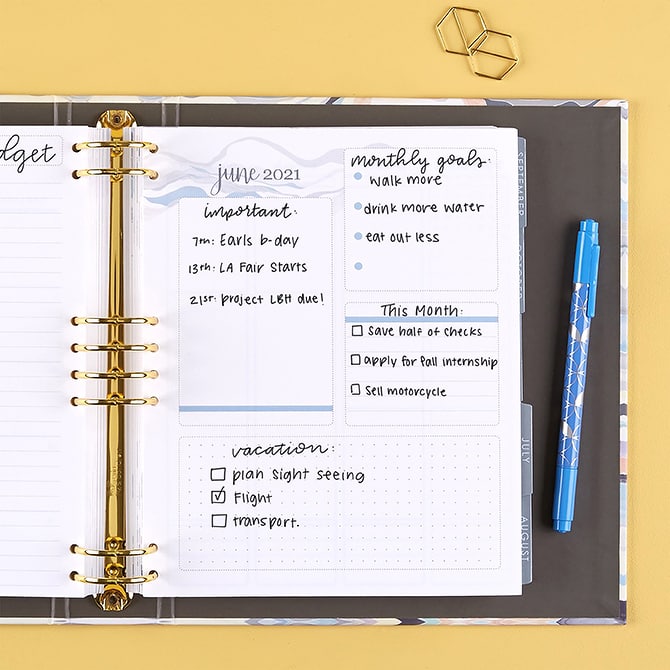 dget
june 2021
important:
7TH: Earls b-day
13TH: LA Fair Starts
21ST: project LBH due!
monthly goals:
walk more
drink more water
eat out less
This Month:
Save half of checks
apply for fall internship
Sell motorcycle
vacation:
plan sight seeing
Flight
transport.
SEPTEMBER
OCTOBER
JULY
AUGUST